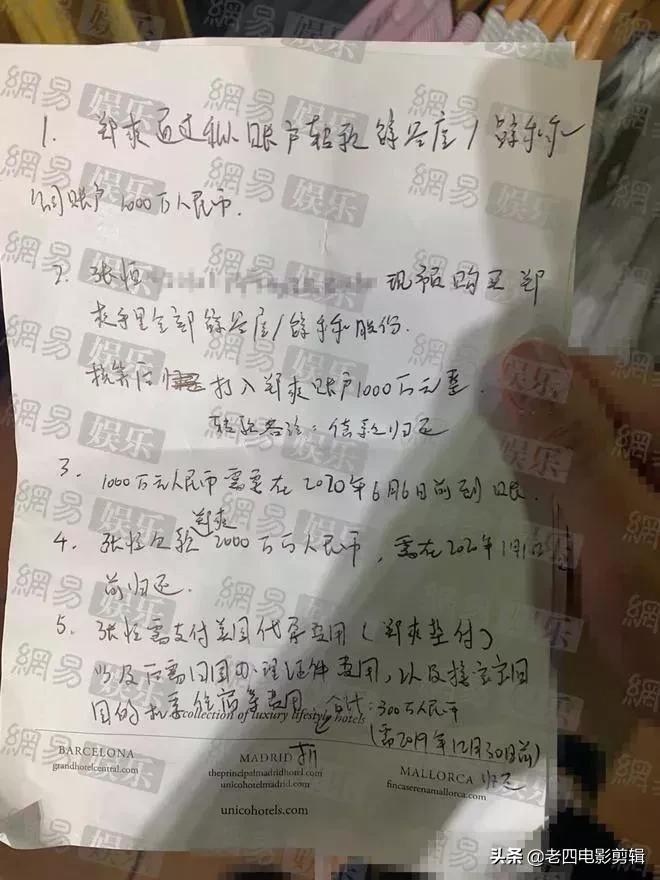 1. 郑爽通过私人账户转款
公司账户1000万人民币.
2. 张恒 现予以购买郑
爽手里全部 股份.
核算后 打入郑爽账户1000万元整.
转账备注：借款归还
3. 1000万元人民币需要在2020年6月6日前到账.
郑爽
4. 张恒欠款2000万万人民币，需在2020年1月1日
前归还.
5. 张恒需支付美国代孕费用（郑爽垫付）
以及后需回国办理证件费用，以及接宝宝回
国的机票住宿等费用 合计：300万人民币
collection of luxury lifestyle hotels
(需2019年12月30日前)
归还
BARCELONA
grandhotelcentral.com
MADRID
theprincipalmadridhotel.com
unicohotelmadrid.com
MALLORCA
fincaserenamallorca.com
unicohotels.com
網易娱乐
头条 @老四电影剪辑